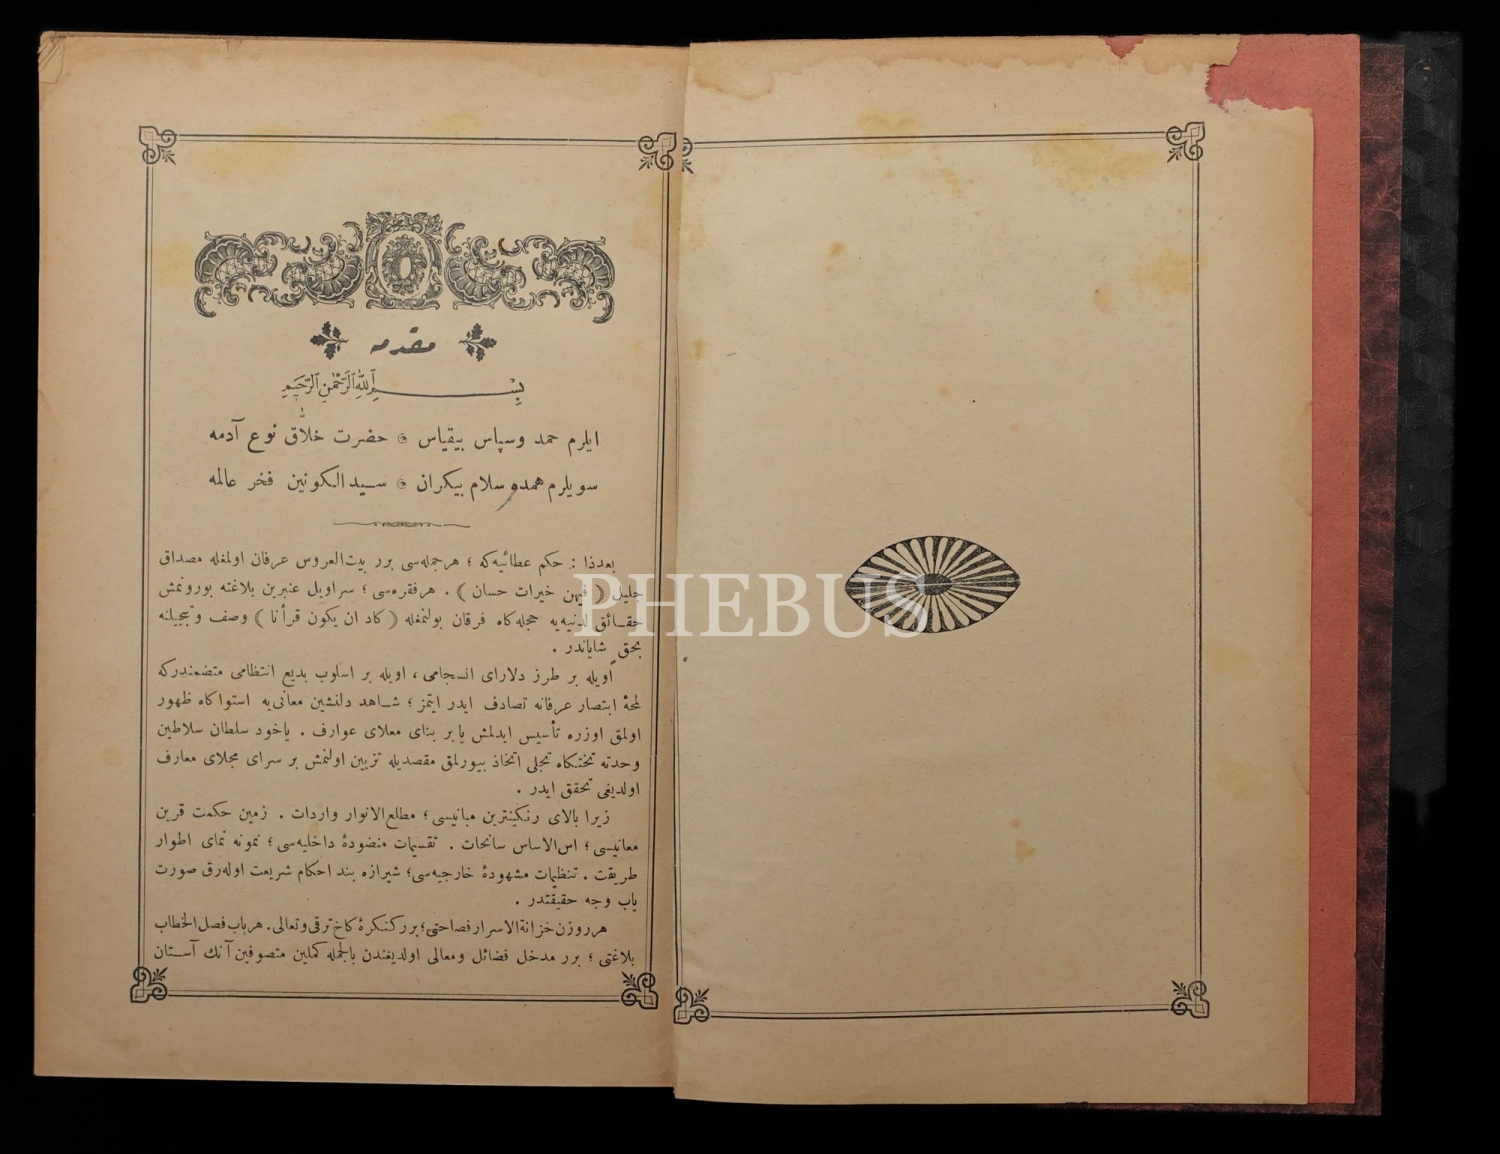 مقدمه
بسم الله الرحمن الرحيم
ايلرم حمد وسپاس بيقياس ه حضرت خلاق نوع آدمه
سويلرم همده سلام بيكران ه سيد الكونين فخر عالمه
بعدذا : حكم عطائيه كه ؛ هرجمله‌سى برر بيت‌العروس عرفان اولمغله مصداق
جليل ( فيهن خيرات حسان ) . هرفقره‌سى ؛ سراويل عنبرين بلاغته بورونمش
حقائق لدنيه‌يه حجله‌كاه فرقان بولنمغله ( كاد ان يكون قرأنا ) وصف و تبجيلنه
بحق شاياندر .
اويله بر طرز دلاراى انسجامى ، اويله بر اسلوب بديع انتظامى متضمندركه
لمحهٔ ابتصار عرفانه تصادف ايدر ايتمز ؛ شاهد دلنشين معانى‌يه استواكاه ظهور
اولمق اوزره تأسيس ايدلمش يا بر بناى معلاى عوارف . ياخود سلطان سلاطين
وحدته تختكاه تجلى اتخاذ بيورلمق مقصديله تزيين اولنمش بر سراى مجلاى معارف
اولديغى تحقق ايدر .
زيرا بالاى رنكينترين مبانيسى ؛ مطلع الانوار واردات . زمين حكمت قرين
معانيسى ؛ اس‌الاساس سانحات . تقسيمات منضودهٔ داخليه‌سى ؛ نمونه نماى اطوار
طريقت . تنظيمات مشهودهٔ خارجيه‌سى ؛ شيرازه بند احكام شريعت اوله‌رق صورت
ياب وجه حقيقتدر .
هرروزن خزانة الاسرار فصاحتى ؛ برر كنكرهٔ كاخ ترقى وتعالى . هرباب فصل الخطاب
بلاغتى ؛ برر مدخل فضائل ومعالى اولديغندن بالجمله كملين متصوفين آنك آستان
PHEBUS